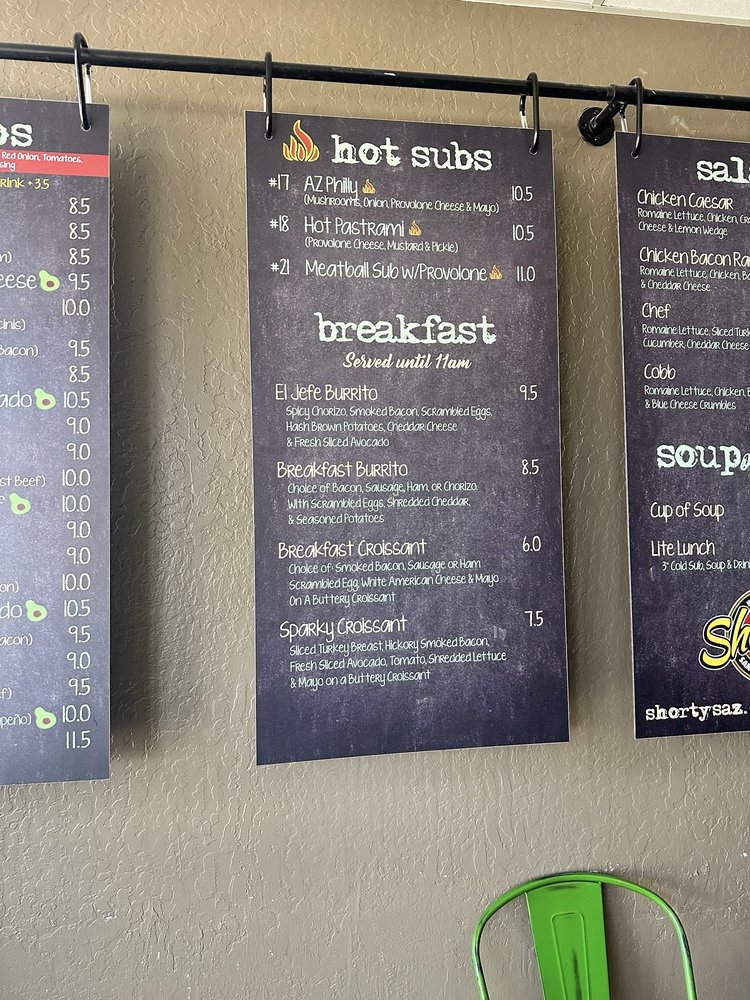 os
Red Onion, Tomatoes,
sing
rink + 3.5
8.5
8.5
8.5
eese 9.5
10.0
cinis)
Bacon) 9.5
8.5
ado 10.5
9.0
9.0
st Beef) 10.0
10.0
9.0
9.0
on) 10.0
ado 10.5
acon) 9.5
9.0
ef) 9.5
peño) 10.0
11.5
hot subs
#17 AZ Philly 10.5
(Mushrooms, Onion, Provolone Cheese & Mayo)
#18 Hot Pastrami 10.5
(Provolone Cheese, Mustard & Pickle)
#21 Meatball Sub w/Provolone 11.0
breakfast
Served until 11am
El Jefe Burrito 9.5
Spicy Chorizo, Smoked Bacon, Scrambled Eggs,
Hash Brown Potatoes, Cheddar Cheese
& Fresh Sliced Avocado
Breakfast Burrito 8.5
Choice of Bacon, Sausage, Ham, or Chorizo.
With Scrambled Eggs, Shredded Cheddar,
& Seasoned Potatoes
Breakfast Croissant 6.0
Choice of: Smoked Bacon, Sausage or Ham
Scrambled Egg, White American Cheese & Mayo
On A Buttery Croissant
Sparky Croissant 7.5
Sliced Turkey Breast, Hickory Smoked Bacon,
Fresh Sliced Avocado, Tomato, Shredded Lettuce
& Mayo on a Buttery Croissant
sal
Chicken Caesar
Romaine Lettuce, Chicken, Cr
Cheese & Lemon Wedge
Chicken Bacon Ra
Romaine Lettuce, Chicken, B
& Cheddar Cheese
Chef
Romaine Lettuce, Sliced Turk
Cucumber, Cheddar Cheese
Cobb
Romaine Lettuce, Chicken, B
& Blue Cheese Crumbles
soup
Cup of Soup
Lite Lunch
3" Cold Sub, Soup & Drin
Sh
shortysaz.